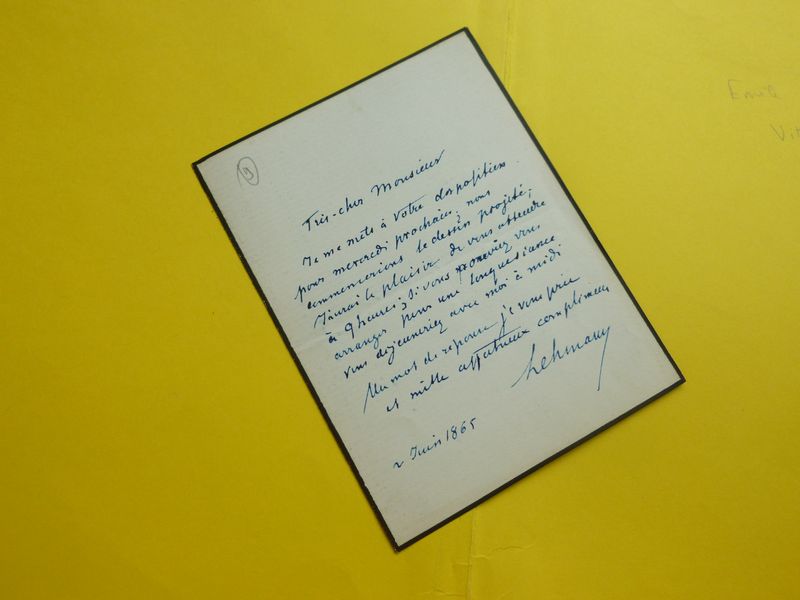 (9)
Très-cher Monsieur
Je me mets à votre disposition
pour mercredi prochain; nous
commencerions le dessin projeté;
J'aurai le plaisir de vous attendre
à 9 heures; si vous pouviez vous
arranger pour une longue séance
vous déjeuneriez avec moi à midi
Un mot de réponse je vous prie
et mille affectueux compliments
Lehmann
2 Juin 1865
Emile